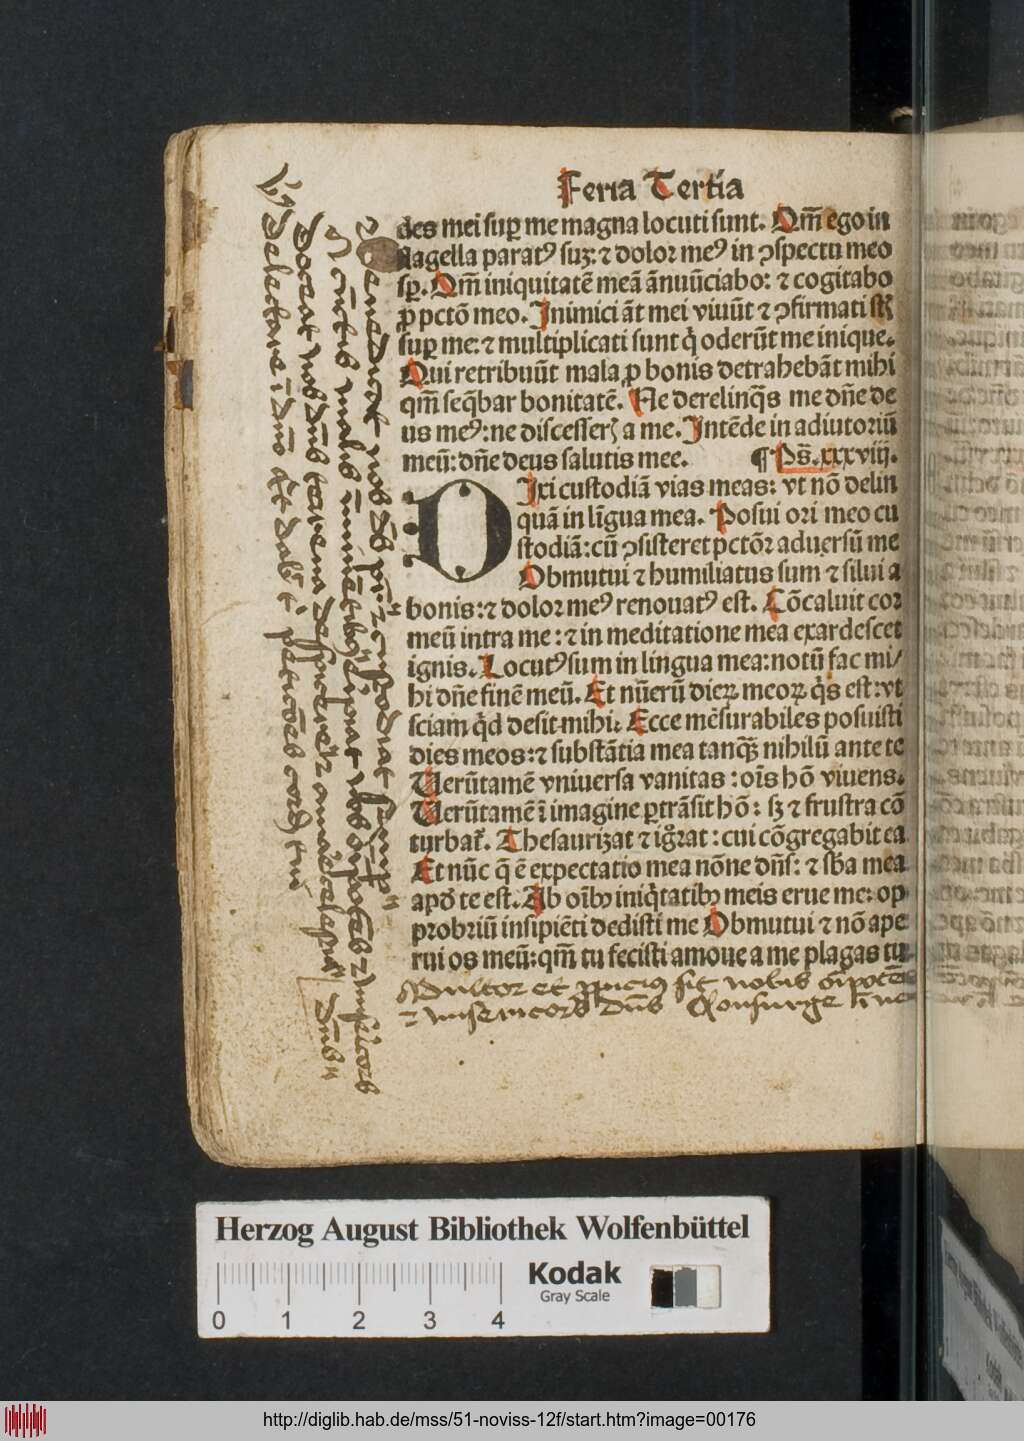 Feria Tertia
des mei sup̄ me magna locuti sunt. Qm̄ ego in
flagella paratꝰ suꝫ: ⁊ dolor meꝰ in ꝯspectu meo
sp̄. Qm̄ iniquitatē meā ānūciabo: ⁊ cogitabo
ꝓ pctō meo. Inimici āt mei viuūt ⁊ ꝯfirmati st̄
sup̄ me: ⁊ multiplicati sunt q̄ oderūt me inique.
Qui retribuūt mala ꝓ bonis detrahebāt mihi
qm̄ seq̄bar bonitatē. Ne derelinq̄s me dn̄e de
us meꝰ: ne discesserꝭ a me. Intēde in adiutoriū
meū: dn̄e deus salutis mee. ¶ Ps̄. xxxviij.
DIxi custodiā vias meas: vt nō delin
quā in līgua mea. Posui ori meo cu
stodiā: cū ꝯsisteret pctōr aduersū me
Obmutui ⁊ humiliatus sum ⁊ silui a
bonis: ⁊ dolor meꝰ renouatꝰ est. Cōcaluit cor
meū intra me: ⁊ in meditatione mea exardescet
ignis. Locutꝰ sum in lingua mea: notū fac mi/
hi dn̄e finē meū. Et nūerū dieꝝ meoꝝ q̄s est: vt
sciam q̄d desit mihi. Ecce mēsurabiles posuisti
dies meos: ⁊ substātia mea tanqꝫ nihilū ante te
Uerūtamē vniuersa vanitas: oīs hō viuens.
Uerūtamē ī imagine ꝑtrāsit hō: sꝫ ⁊ frustra cō
turbat᷑. Thesaurizat ⁊ iḡrat: cui cōgregabit ea
Et nūc q̄ ē expectatio mea nōne dn̄s: ⁊ sb̄a mea
apd̄ te est. Ab oībꝰ iniq̄tatibꝰ meis erue me: op
probriū insipiēti dedisti me Obmutui ⁊ nō ape
rui os meū: qm̄ tu fecisti amoue a me plagas tu
et ꝓpicius sit nobis oīpotēs
⁊ misericors dn̄s Exsurge
Benedicat nos ds̄ pr̄ ⁊ custodiat
Doceat nos dn̄s
Delectare ī dn̄o
petitiōes cordꝭ tui
Herzog August Bibliothek Wolfenbüttel
Kodak
Gray Scale
0 1 2 3 4
http://diglib.hab.de/mss/51-noviss-12f/start.htm?image=00176